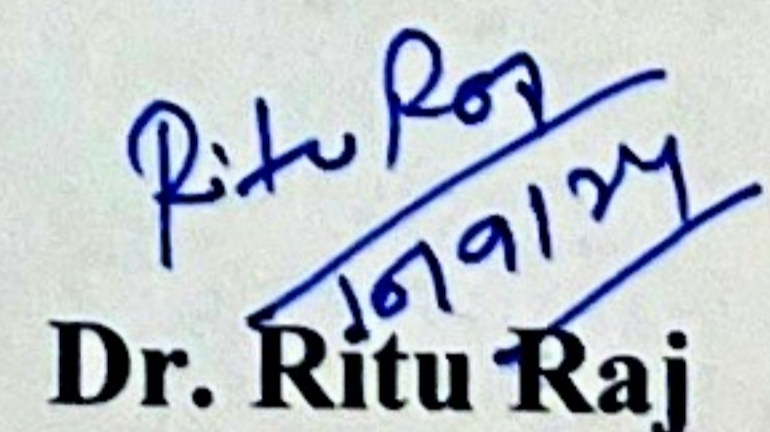 Ritu Raj
10/9/24
Dr. Ritu Raj